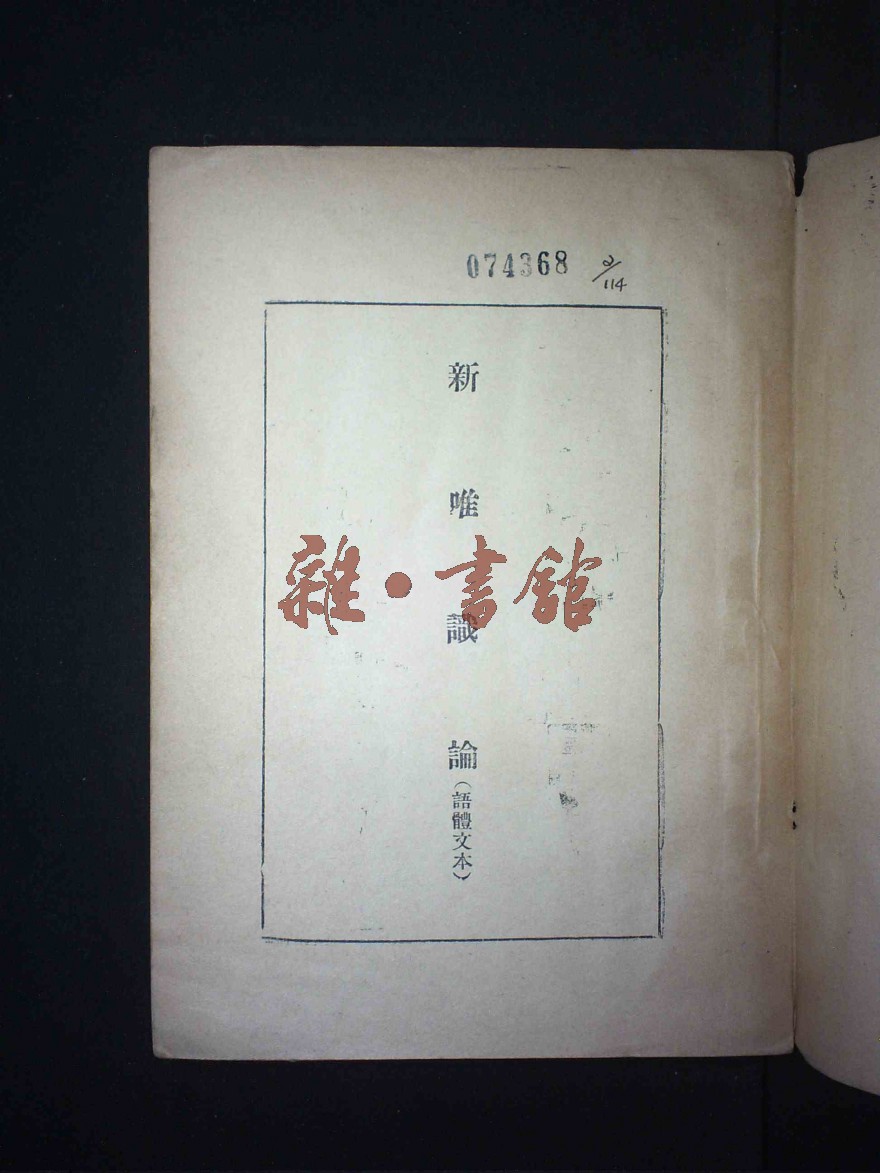 074368
2/114
新唯識論(語體文本)
雜·書館